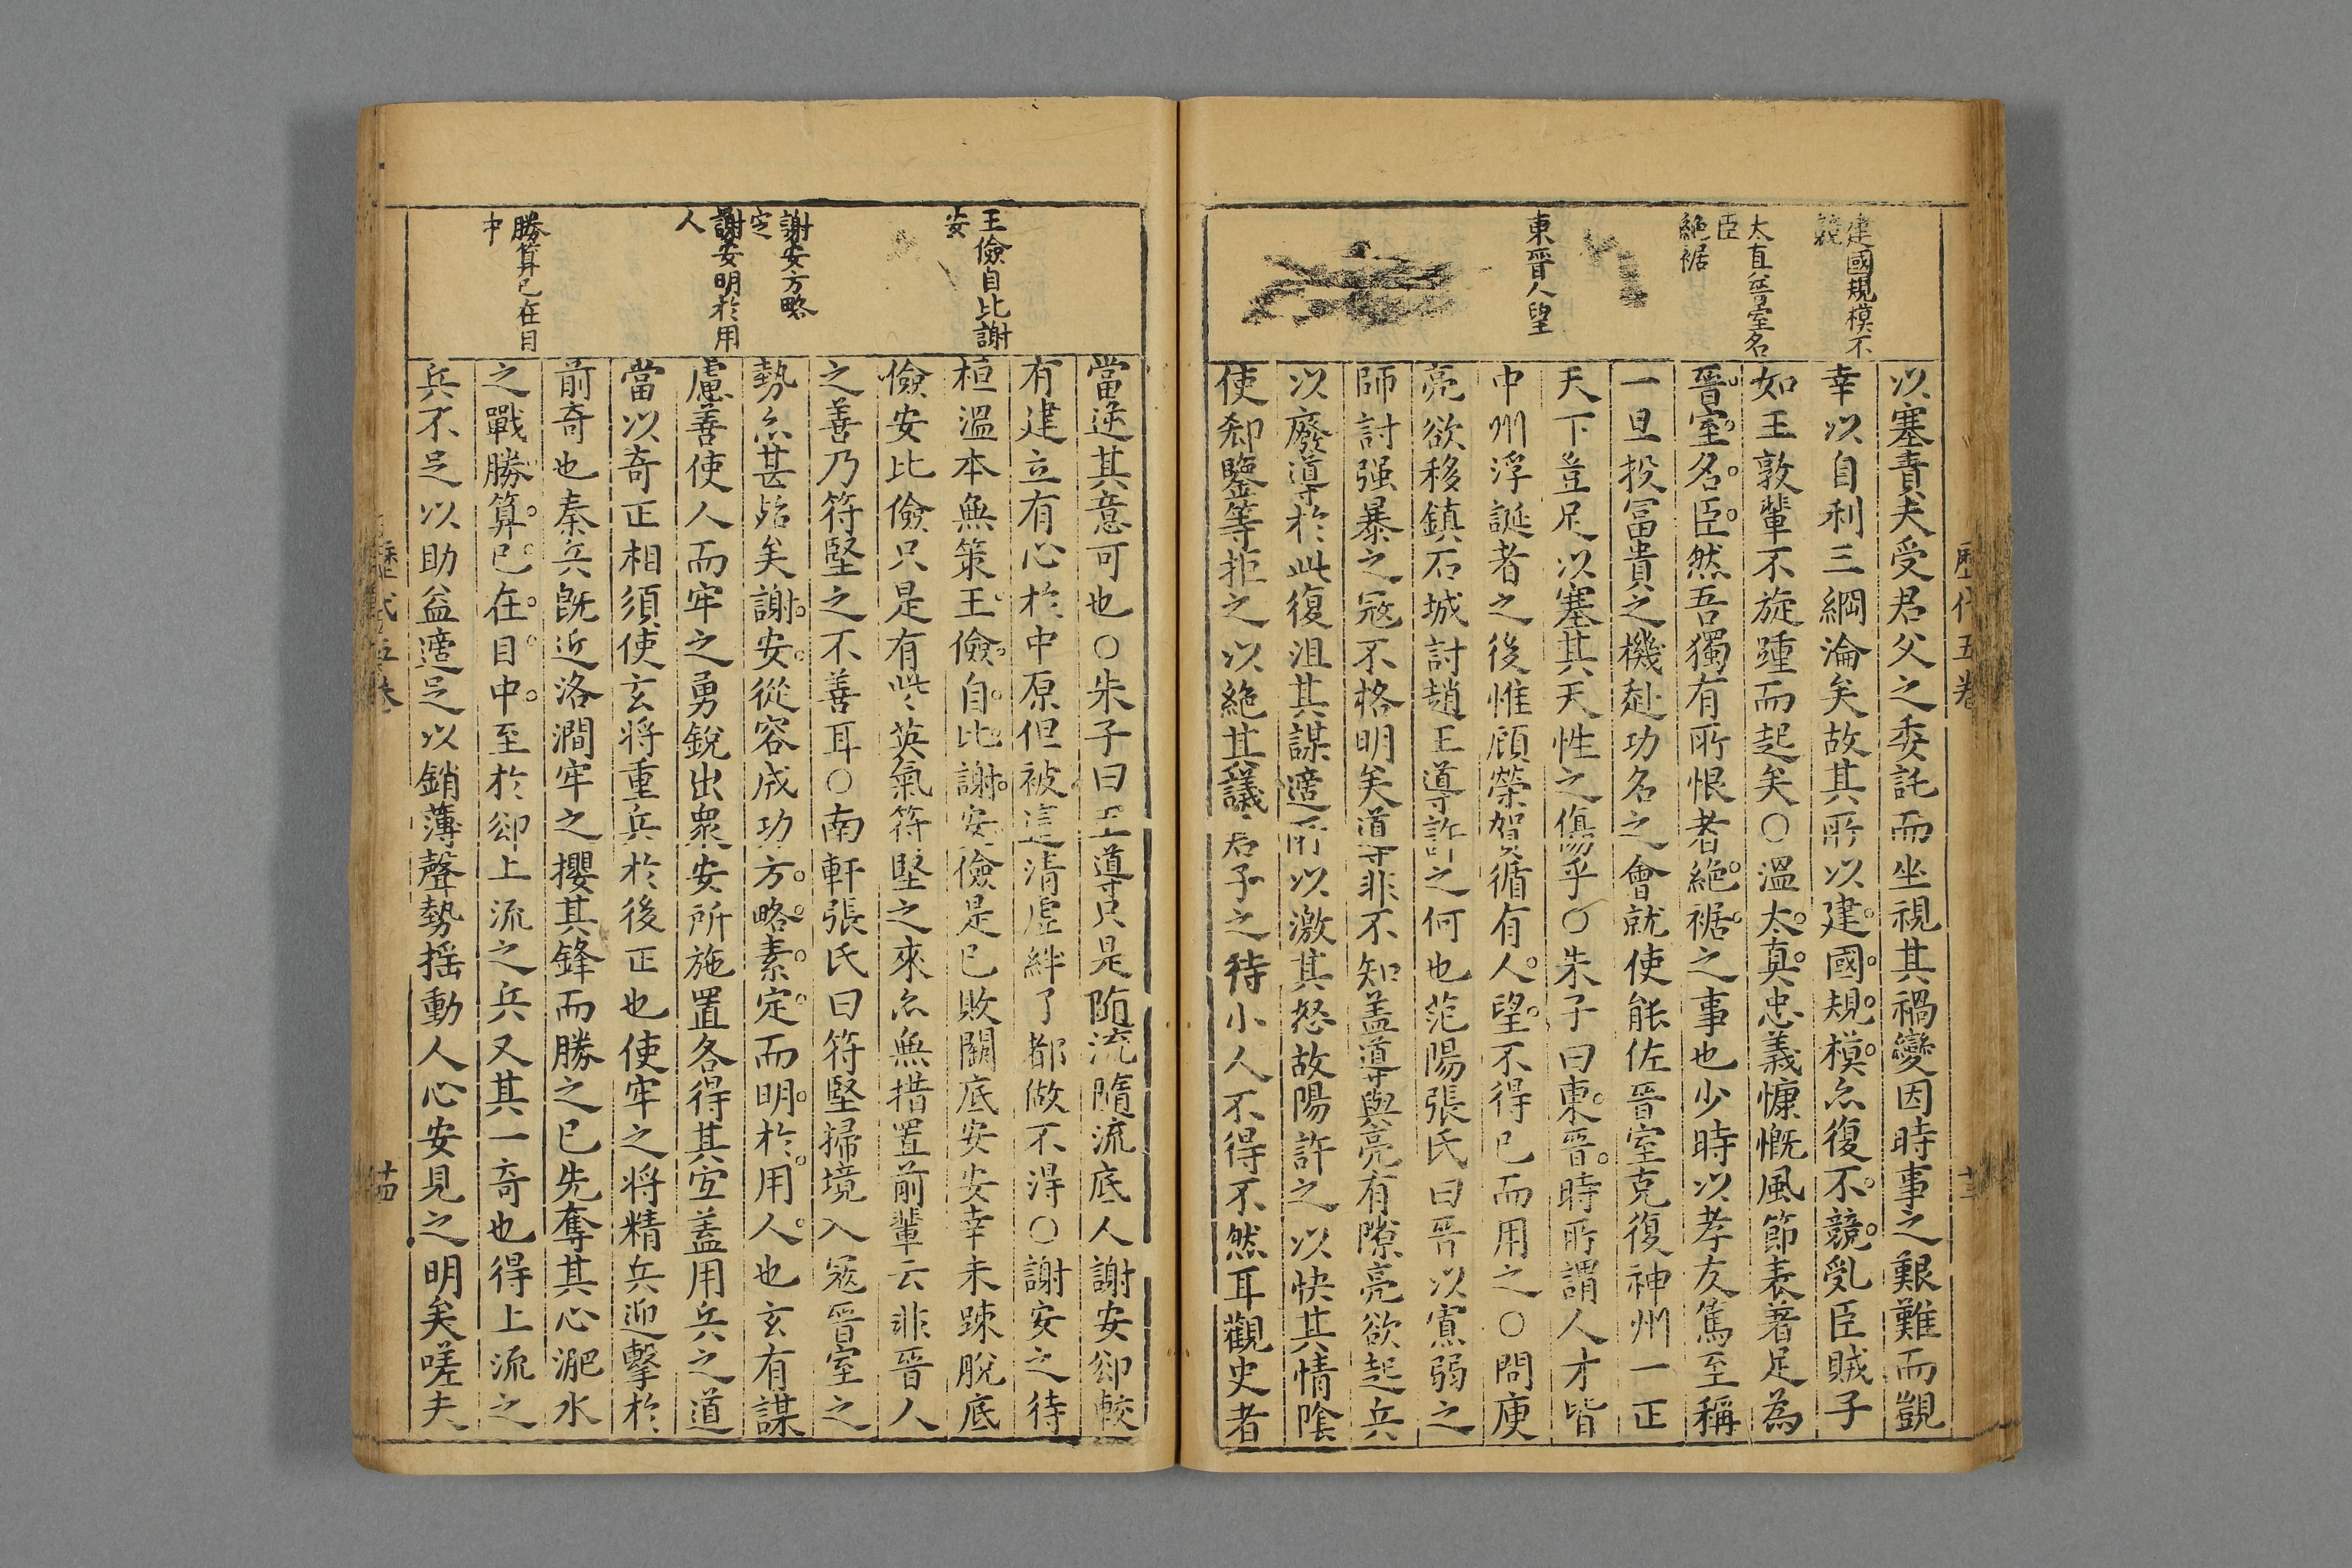 建國規模不
競
太直晉室名
臣
絶裾
東晉人望
以塞責夫受君父之委託而坐視其禍變因時事之艱難而覬
幸以自利三綱淪矣故其所以建國規模亦復不競乱臣賊子
如王敦輩不旋踵而起矣○溫太真忠義慷慨風節表著足為
晉室名臣然吾獨有所恨者絶裾之事也少時以孝友篤至稱
一旦投冨貴之機赴功名之會就使能佐晉室克復神州一正
天下豈足以塞其天性之傷乎○朱子曰東晉時所謂人才皆
中州浮誕者之後惟顧榮賀循有人望不得已而用之○問庾
亮欲移鎮石城討趙王導許之何也范陽張氏曰晉以寡弱之
師討强暴之寇不格明矣導非不知盖導與亮有隙亮欲起兵
以廢導於此復沮其謀適所以激其怒故陽許之以快其情陰
使郄鑒等拒之以絶其議君子之待小人不得不然耳觀史者
歷代五卷
十三
王儉自比謝
安
謝安方略
定
謝安明於用
人
勝算已在目
中
當逆其意可也○朱子曰王導只是随流隨流底人謝安卻較
有建立有心於中原但被這清虛絆了都做不淂○謝安之待
桓溫本無策王儉自比謝安儉是已敗闕底安安幸未踈脫底
儉安比儉只是有些英氣符堅之來亦無措置前輩云非晉人
之善乃符堅之不善耳○南軒張氏曰符堅掃境入寇晉室之
勢亦甚殆矣謝安從容成功方略素定而明於用人也玄有謀
慮善使人而牢之勇銳出衆安所施置各得其宜盖用兵之道
當以奇正相須使玄将重兵於後正也使牢之将精兵迎擊於
前奇也秦兵既近洛澗牢之攖其鋒而勝之已先奪其心淝水
之戰勝算已在目中至於卻上流之兵又其一奇也得上流之
兵不足以助益適足以銷薄聲勢摇動人心安見之明矣嗟夫
歷代五卷
十四